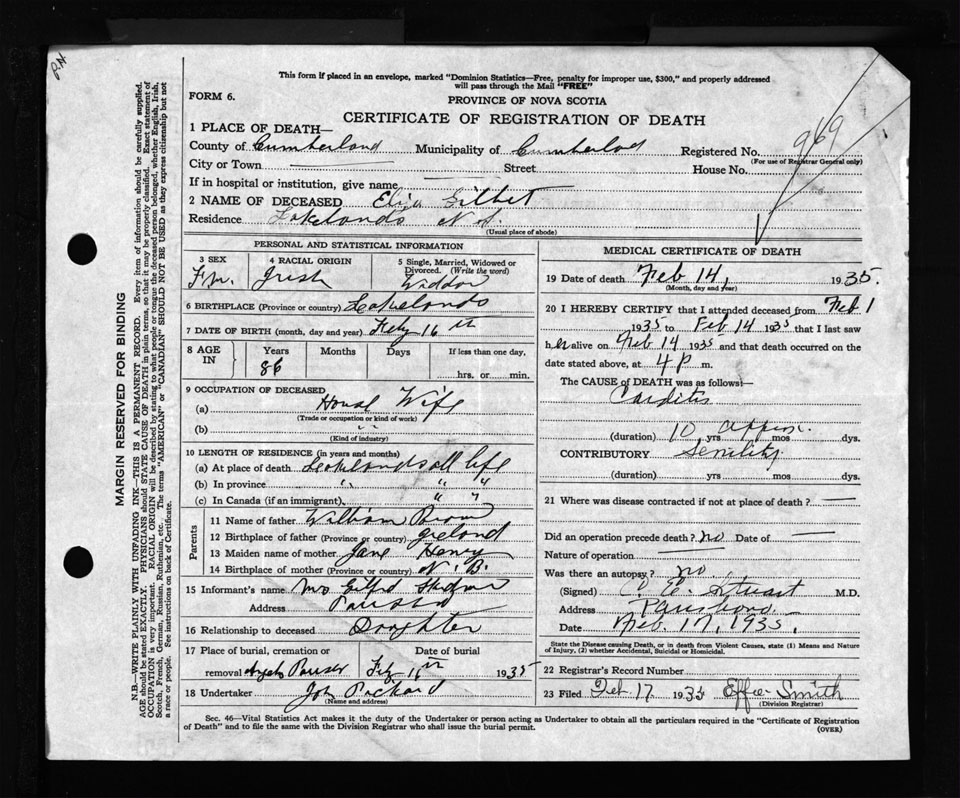 P.N
This form if placed in an envelope, marked "Dominion Statistics—Free, penalty for improper use, $300," and properly addressed
will pass through the Mail "FREE"
FORM 6.
PROVINCE OF NOVA SCOTIA
CERTIFICATE OF REGISTRATION OF DEATH
969
1 PLACE OF DEATH—
County of Cumberland Municipality of Cumberlad Registered No.
(For use of Registrar General only)
City or Town Street House No.
If in hospital or institution, give name
2 NAME OF DECEASED Eliza Gilbet
Residence Lakelands N.S.
(Usual place of abode)
PERSONAL AND STATISTICAL INFORMATION
3 SEX 4 RACIAL ORIGIN 5 Single, Married, Widowed or
Divorced. (Write the word)
Fm. Irish Widdow
6 BIRTHPLACE (Province or country) Lakelands
7 DATE OF BIRTH (month, day and year) Feby 16
8 AGE IN Years Months Days If less than one day,
86 hrs. or min.
9 OCCUPATION OF DECEASED
(a) House Wife
(Trade or occupation or kind of work)
(b) " "
(Kind of industry)
10 LENGTH OF RESIDENCE (in years and months)
(a) At place of death Lakelands all life
(b) In province " " "
(c) In Canada (if an immigrant) " "
Parents
11 Name of father William Brown
12 Birthplace of father (Province or country) Ireland
13 Maiden name of mother Jane Henry
14 Birthplace of mother (Province or country) N.B.
15 Informant's name Mrs
Address
16 Relationship to deceased Doughter
17 Place of burial, cremation or Date of burial
removal Feby 16 1935
18 Undertaker John Packard
(Name and address)
MEDICAL CERTIFICATE OF DEATH
19 Date of death Feb 14, 1935.
(Month, day and year)
20 I HEREBY CERTIFY that I attended deceased from Feb 1
1935 to Feb 14 1935 that I last saw
her alive on Feb 14 1935 and that death occurred on the
date stated above, at 4 P m.
The CAUSE of DEATH was as follows:—
Carditis
(duration) 10 yrs approx. mos dys.
CONTRIBUTORY Senility
(duration) yrs mos dys.
21 Where was disease contracted if not at place of death?
Did an operation precede death? no Date of
Nature of operation
Was there an autopsy? no
(Signed) C. E. Stuart M.D.
Address Parrsboro.
Date Feb. 17, 1935.
State the Disease causing Death, or in death from Violent Causes, state (1) Means and
Nature of Injury, (2) whether Accidental, Suicidal or Homicidal.
22 Registrar's Record Number
23 Filed Feb. 17 1935 Effie Smith
(Division Registrar)
Sec. 46—Vital Statistics Act makes it the duty of the Undertaker or person acting as Undertaker to obtain all the particulars required in the "Certificate of Registration
of Death" and to file the same with the Division Registrar who shall issue the burial permit.
(OVER)
MARGIN RESERVED FOR BINDING
N.B.—WRITE PLAINLY WITH UNFADING INK—THIS IS A PERMANENT RECORD. Every item of information should be carefully supplied.
AGE should be stated EXACTLY. PHYSICIANS should STATE CAUSE OF DEATH in plain terms, so that it may be properly classified. Exact statement of
OCCUPATION is very important. RACIAL ORIGIN will be described by stating to what people or tongue the deceased person belonged, whether English, Irish,
Scotch, French, German, Russian, Ruthenian, etc. The terms "AMERICAN" or "CANADIAN" SHOULD NOT BE USED as they express citizenship but not
a race or people. See instructions on back of Certificate.